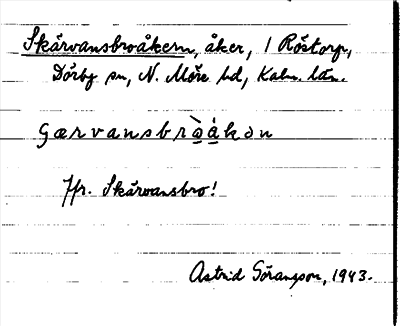 Skärvansbroåkern, åker, 1 Röstorp,
Dörby sn, N. Möre hd, Kalm. län.
gærvansbròåkən
Jfr. Skärvansbro!
Astrid Göransson, 1943.